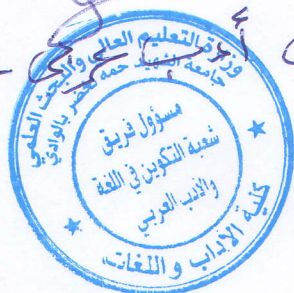 وزارة التعليم العالي والبحث العلمي
جامعة الشهيد حمه لخضر بالوادي
مسؤول فريق
شعبة التكوين في اللغة
والأدب العربي
كلية الآداب و اللغات